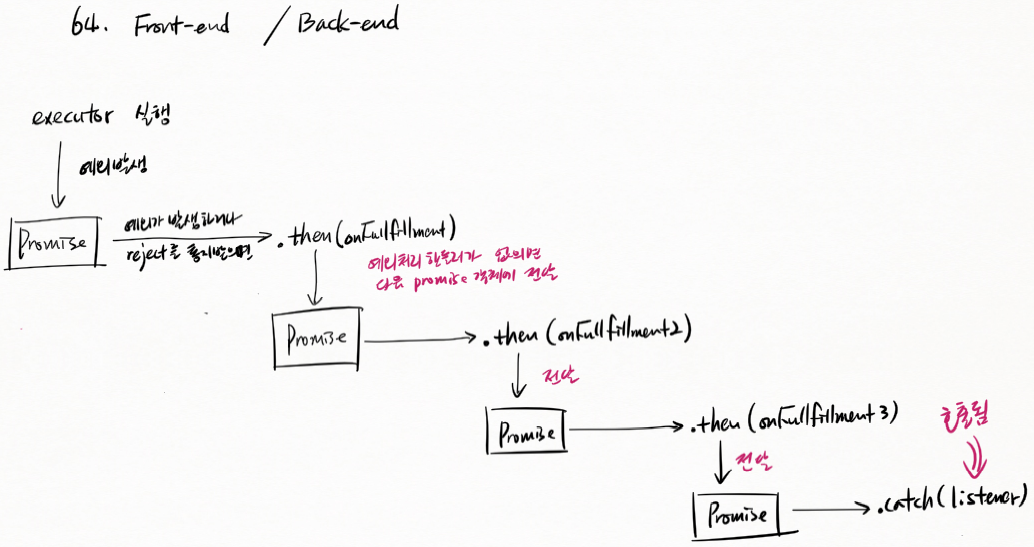 64. Front-end / Back-end
executor 실행
에러발생
Promise
에러가 발생하거나
reject를 통지받으면
.then(onFullfillment)
에러처리 핸들러가 없으면
다음 promise 객체에 전달
Promise
.then(onFullfillment2)
전달
Promise
.then(onFullfillment3)
전달
호출됨
Promise
.catch(listener)